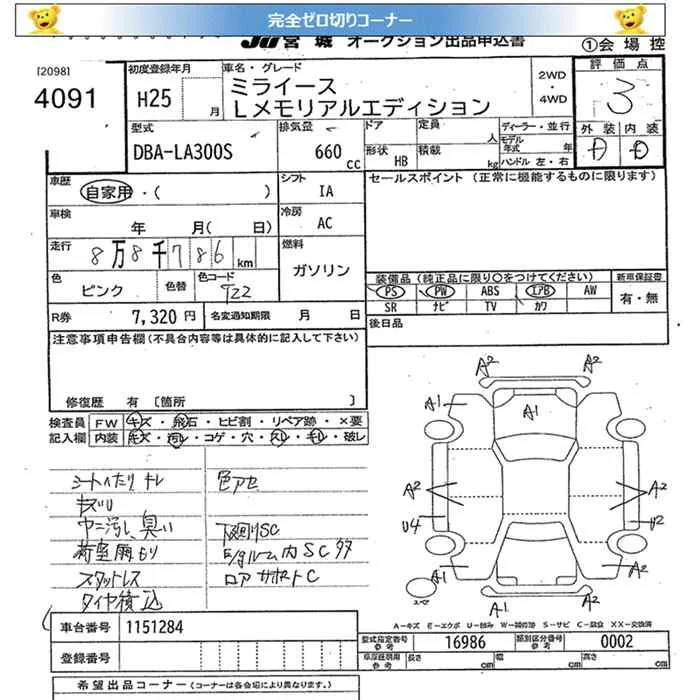 完全ゼロ切りコーナー
JU宮城 オークション出品申込書 ①会場控
[2098] 4091
初度登録年月 H25 月
車名・グレード ミライース
Lメモリアルエディション
2WD・4WD
評価点 3
外装 内装
型式 DBA-LA300S
排気量 660 cc
ドア 形状 HB
定員 人
積載 kg
ディーラー・並行
モデル年式 年
ハンドル 左・右
車歴 自家用・( )
シフト IA
セールスポイント (正常に機能するものに限ります)
車検 年 月( 日)
冷房 AC
走行 8万8千786km
燃料 ガソリン
色 ピンク 色替 色コード T22
装備品(純正品に限り○をつけてください) 新車保証書
PS PW ABS エアB AW 有・無
SR ナビ TV カワ
R券 7,320円 名変通知期限 月 日
後日品
注意事項申告欄(不具合内容等は具体的に記入して下さい)
修復歴 有 [箇所 ]
検査員 FW キズ・飛石・ヒビ割・リペア跡・×要
記入欄 内装 キズ・汚レ・コゲ・穴・スレ・キレ・破レ
シートヘたり キレ 色アセ
ヤニ汚し、臭い 下廻りSC
荷室雨もり
スタットレス ロアサポートC
タイヤ積込
A2 A2
A1 A1 A1
A2 A2
U4 U2
A1 A2 A1
スペア
A1 A2
A-キズ E-エクボ U-凹み W-補修跡 S-サビ C-腐食 XX-交換済
車台番号 1151284
型式指定番号 参考 16986 類別区分番号 参考 0002
登録番号
車庫証明用 参考 長さ cm 幅 cm 高さ cm
希望出品コーナー(コーナーは各会場により異なります。)